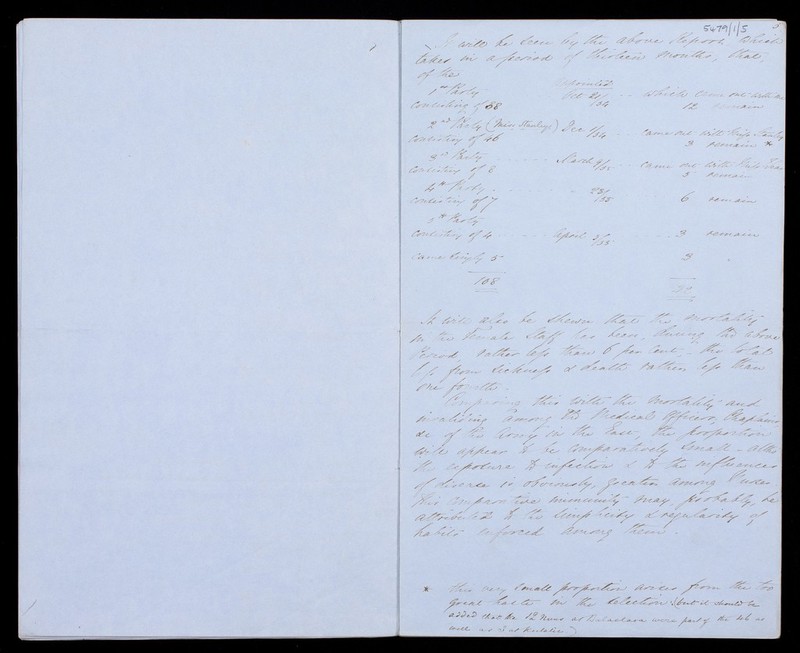 5479/1/5
5
It will be seen by the above Report which
takes in a period of thirteen months, that,
of the
1st Party appointed Oct 20/54 -- which came out
consisting of 38 12 remain
2nd Party (Miss Stanley's) Dec /54 -- came out with Miss Stanley
consisting of 46 3 remain *
3rd Party March /55 came out with
consisting of 8 5 remain
4th Party
consisting of 7 /55 6 remain
5th Party
consisting of 4 April /55 -- 3 remain
came singly 5 3
108
It will also be shewn that the mortality
in the Female Staff has been, during the above
Period, rather less than 6 per cent, - the total
loss from Sickness & death rather less than
one fourth.
Comparing this with the mortality and
invaliding among the Medical Officers, Chaplains
&c of the Army in the East, the proportion
will appear to be comparatively small - altho'
the exposure to infection & to the influences
of disease is obviously greater among Nurses.
This comparative immunity may probably be
attributed to the simplicity & regularity of
habits enforced among them.
* this very small proportion arises from the too
great haste in the selection (but it should be
added that the 12 Nuns at Balaclava were part of the 46 as
well as 3 at Koulali)